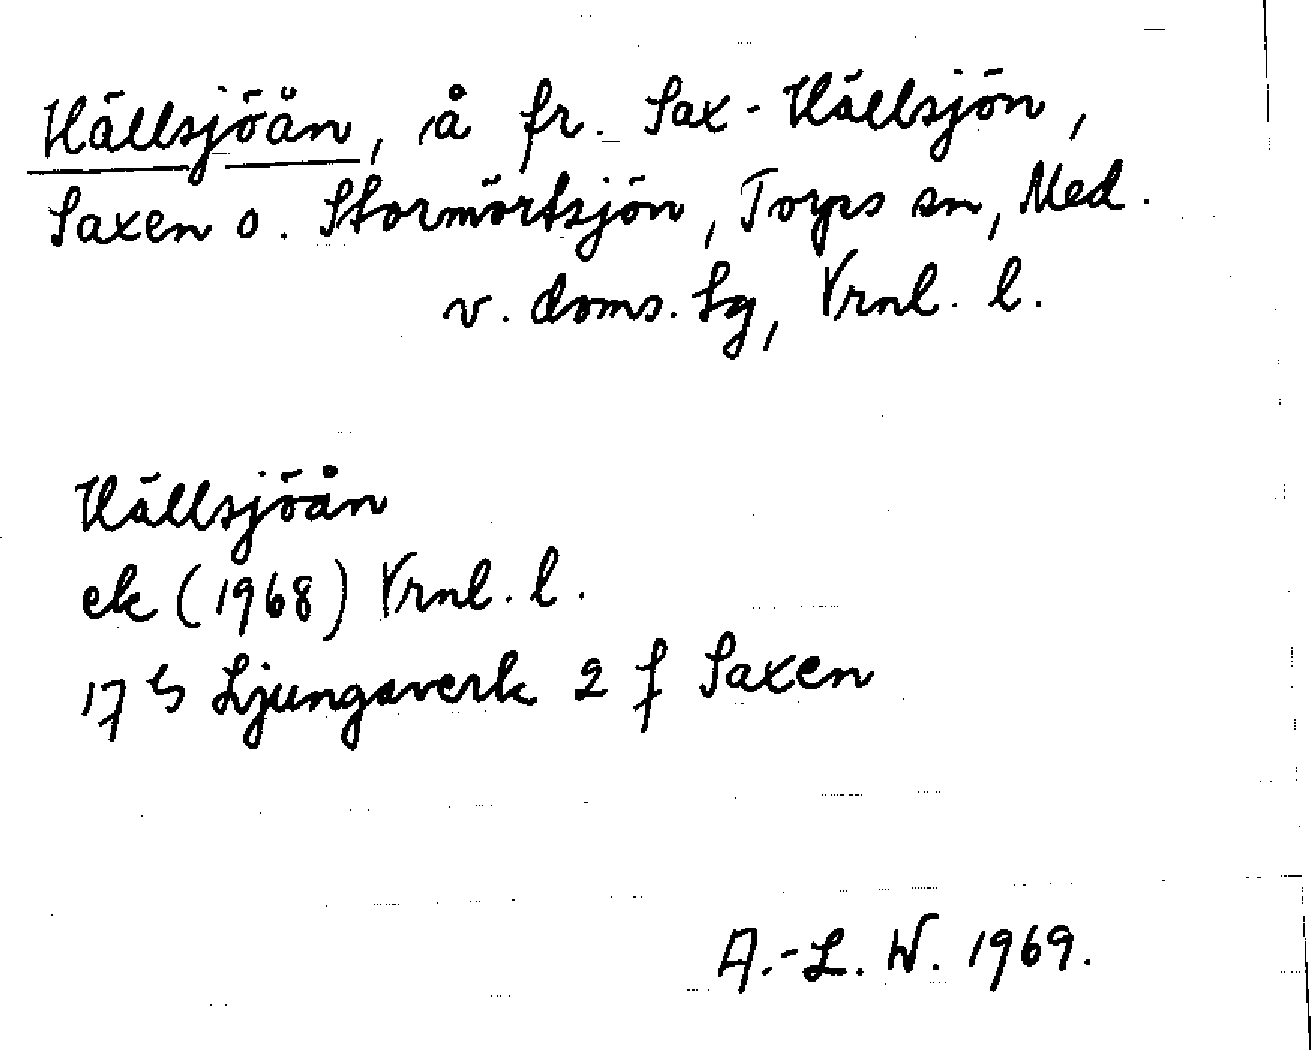 Hällsjöån, å fr. Sax-Hällsjön,
Saxen o. Stormörtsjön, Torps sn, Med.
v. doms. Lg, Vrnl. l.
Hällsjöån
ek (1968) Vrnl. l.
17 G Ljungaverk 2 f Saxen
A.-L. W. 1969.